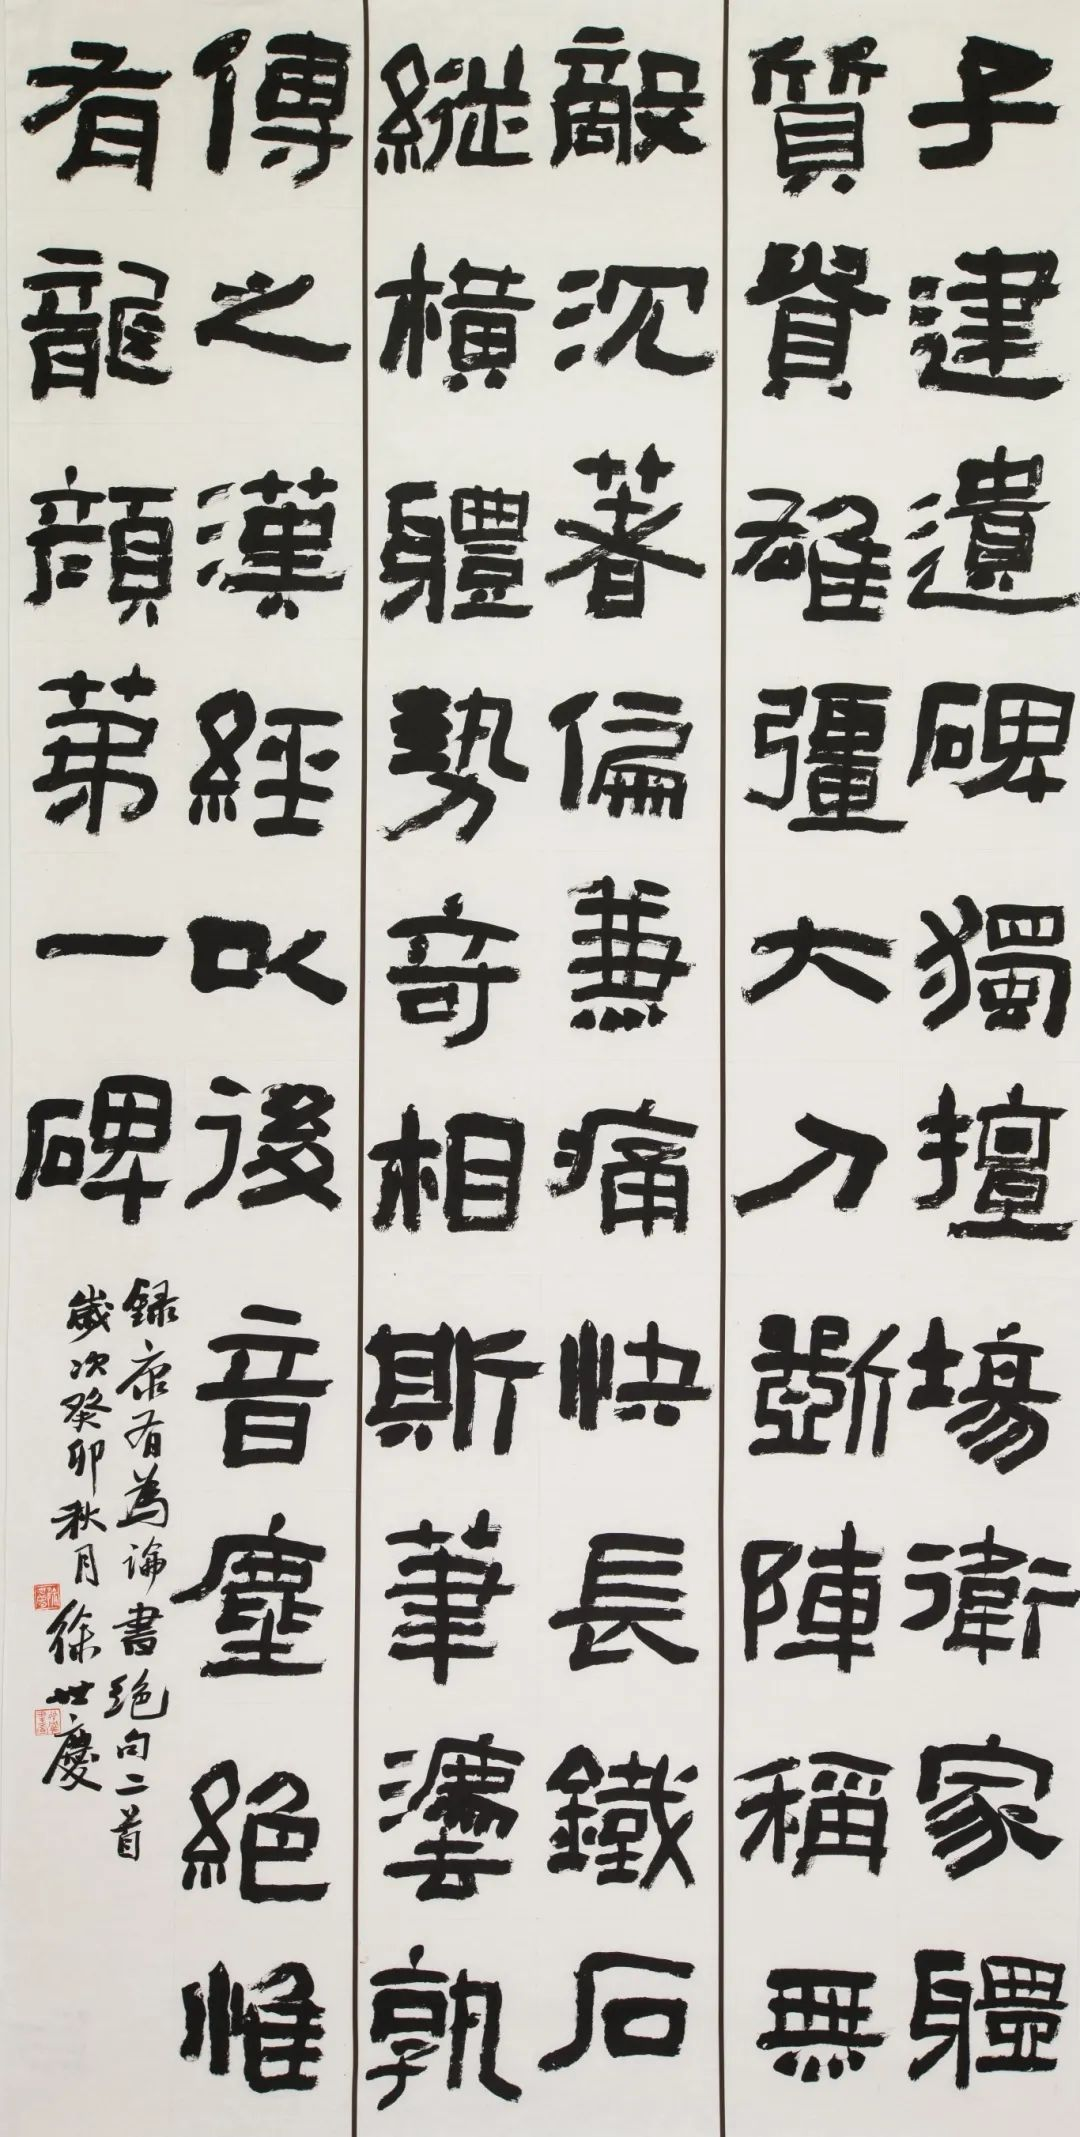 子建遺碑獨擅場衛家軆
質貴雄彊大刀斲陣稱無
敵沉著偏兼痛快長鐵石
縱橫軆勢奇相斯筆灋孰
傳之漢經以後音塵絕惟
有龍顏第一碑
録康有為論書絕句二首
歲次癸卯秋月徐世慶